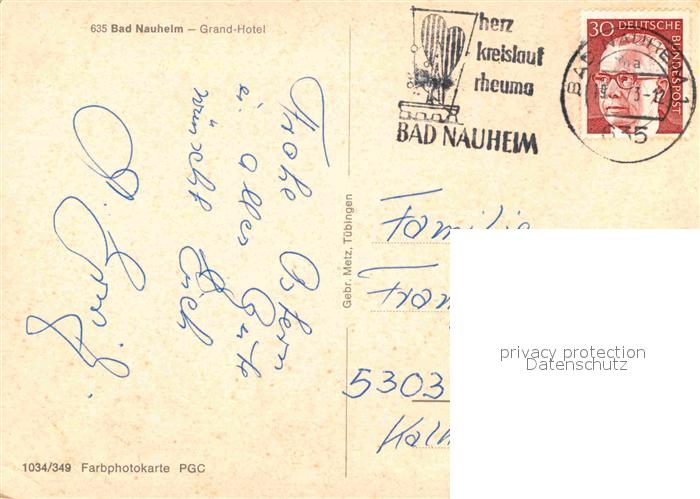 635 Bad Nauheim — Grand-Hotel
herz
kreislauf
rheuma
BAD NAUHEIM
30 DEUTSCHE BUNDESPOST
BAD NAUHEIM
635
Frohe Ostern
u. alles Gute
wünscht Euch
Gebr. Metz, Tübingen
Familie
Fran
5303
Kal
privacy protection
Datenschutz
1034/349 Farbphotokarte PGC